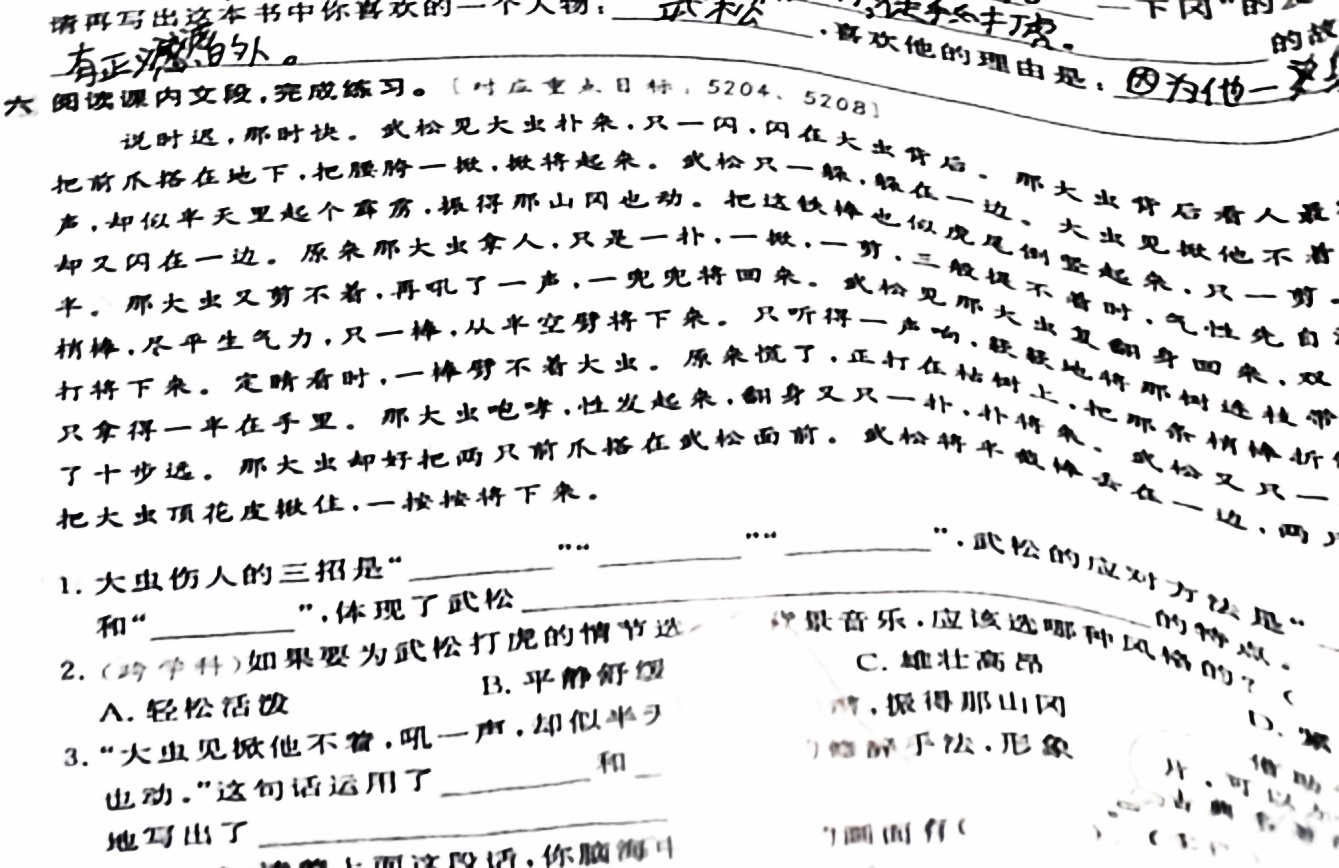 请再写出这本书中你喜欢的一个人物：武松，喜欢他的理由是：因为他一
有正
六 阅读课内文段，完成练习。〔对应重点目标：5204、5208〕
说时迟，那时快。武松见大虫扑来，只一闪，闪在大虫背后。那大虫背后看人最
把前爪搭在地下，把腰胯一掀，掀将起来。武松只一躲，躲在一边。大虫见掀他不着
声，却似半天里起个霹雳，振得那山冈也动。把这铁棒也似虎尾倒竖起来，只一剪，
却又闪在一边。原来那大虫拿人，只是一扑，一掀，一剪，三般提不着时，气性先自
半。那大虫又剪不着，再吼了一声，一兜兜将回来。武松见那大虫复翻身回来，双
梢棒，尽平生气力，只一棒，从半空劈将下来。只听得一声响，簌簌地将那树连枝带
打将下来。定睛看时，一棒劈不着大虫。原来慌了，正打在枯树上，把那条梢棒折
只拿得一半在手里。那大虫咆哮，性发起来，翻身又只一扑，扑将来。武松又只一
了十步远。那大虫却好把两只前爪搭在武松面前。武松将半截棒丢在一边，两
把大虫顶花皮揪住，一按按将下来。
1. 大虫伤人的三招是“________”“________”“________”，武松的应对方法是“
和“________”，体现了武松________的特点。
2.（跨学科）如果要为武松打虎的情节选 景音乐，应该选哪种风格的？（
A. 轻松活泼 B. 平静舒缓 C. 雄壮高昂 D.
3. “大虫见掀他不着，吼一声，却似半天 ，振得那山冈
也动。”这句话运用了________和 修辞手法，形象
地写出了________
上面这段话，你脑海中 画面有（